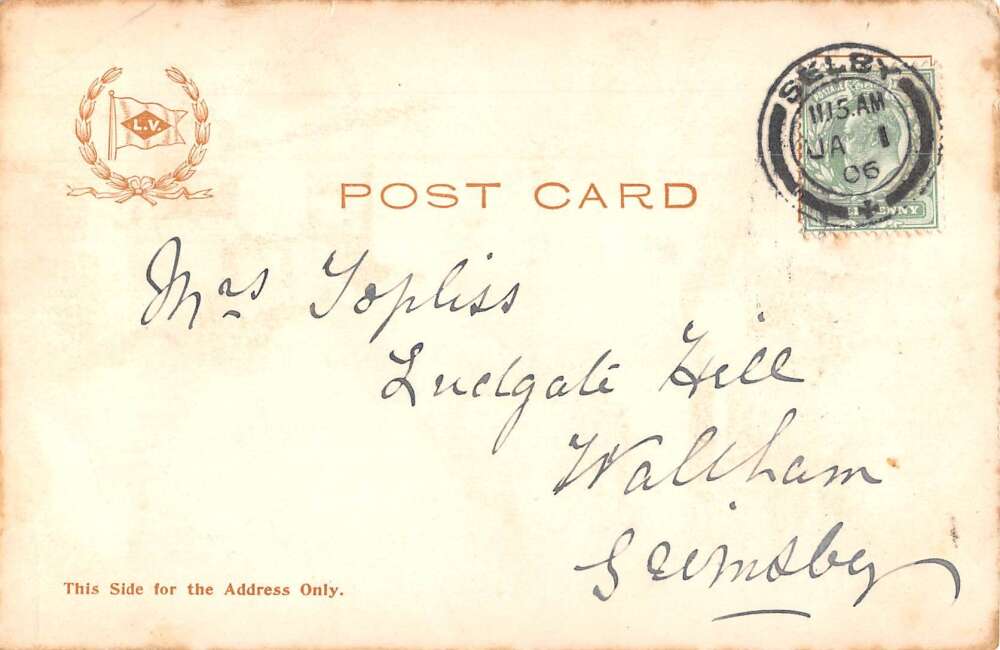 L.V.
SELBY
11 15.AM
JA 1
06
POST CARD
Mrs Topliss
Ludgate Hill
Waltham
Grimsby
This Side for the Address Only.